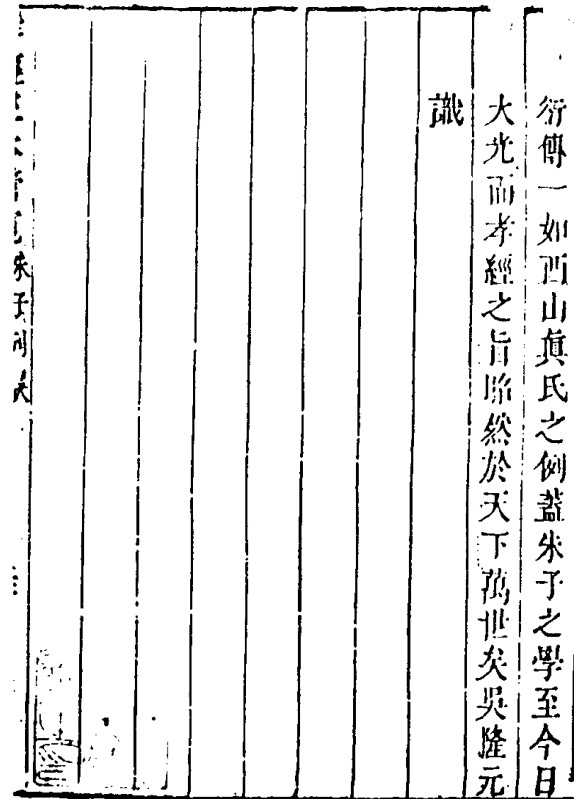 衍傳一如西山真氏之例蓋朱子之學至今日
大光而孝經之旨昭然於天下萬世矣吳隆元
識